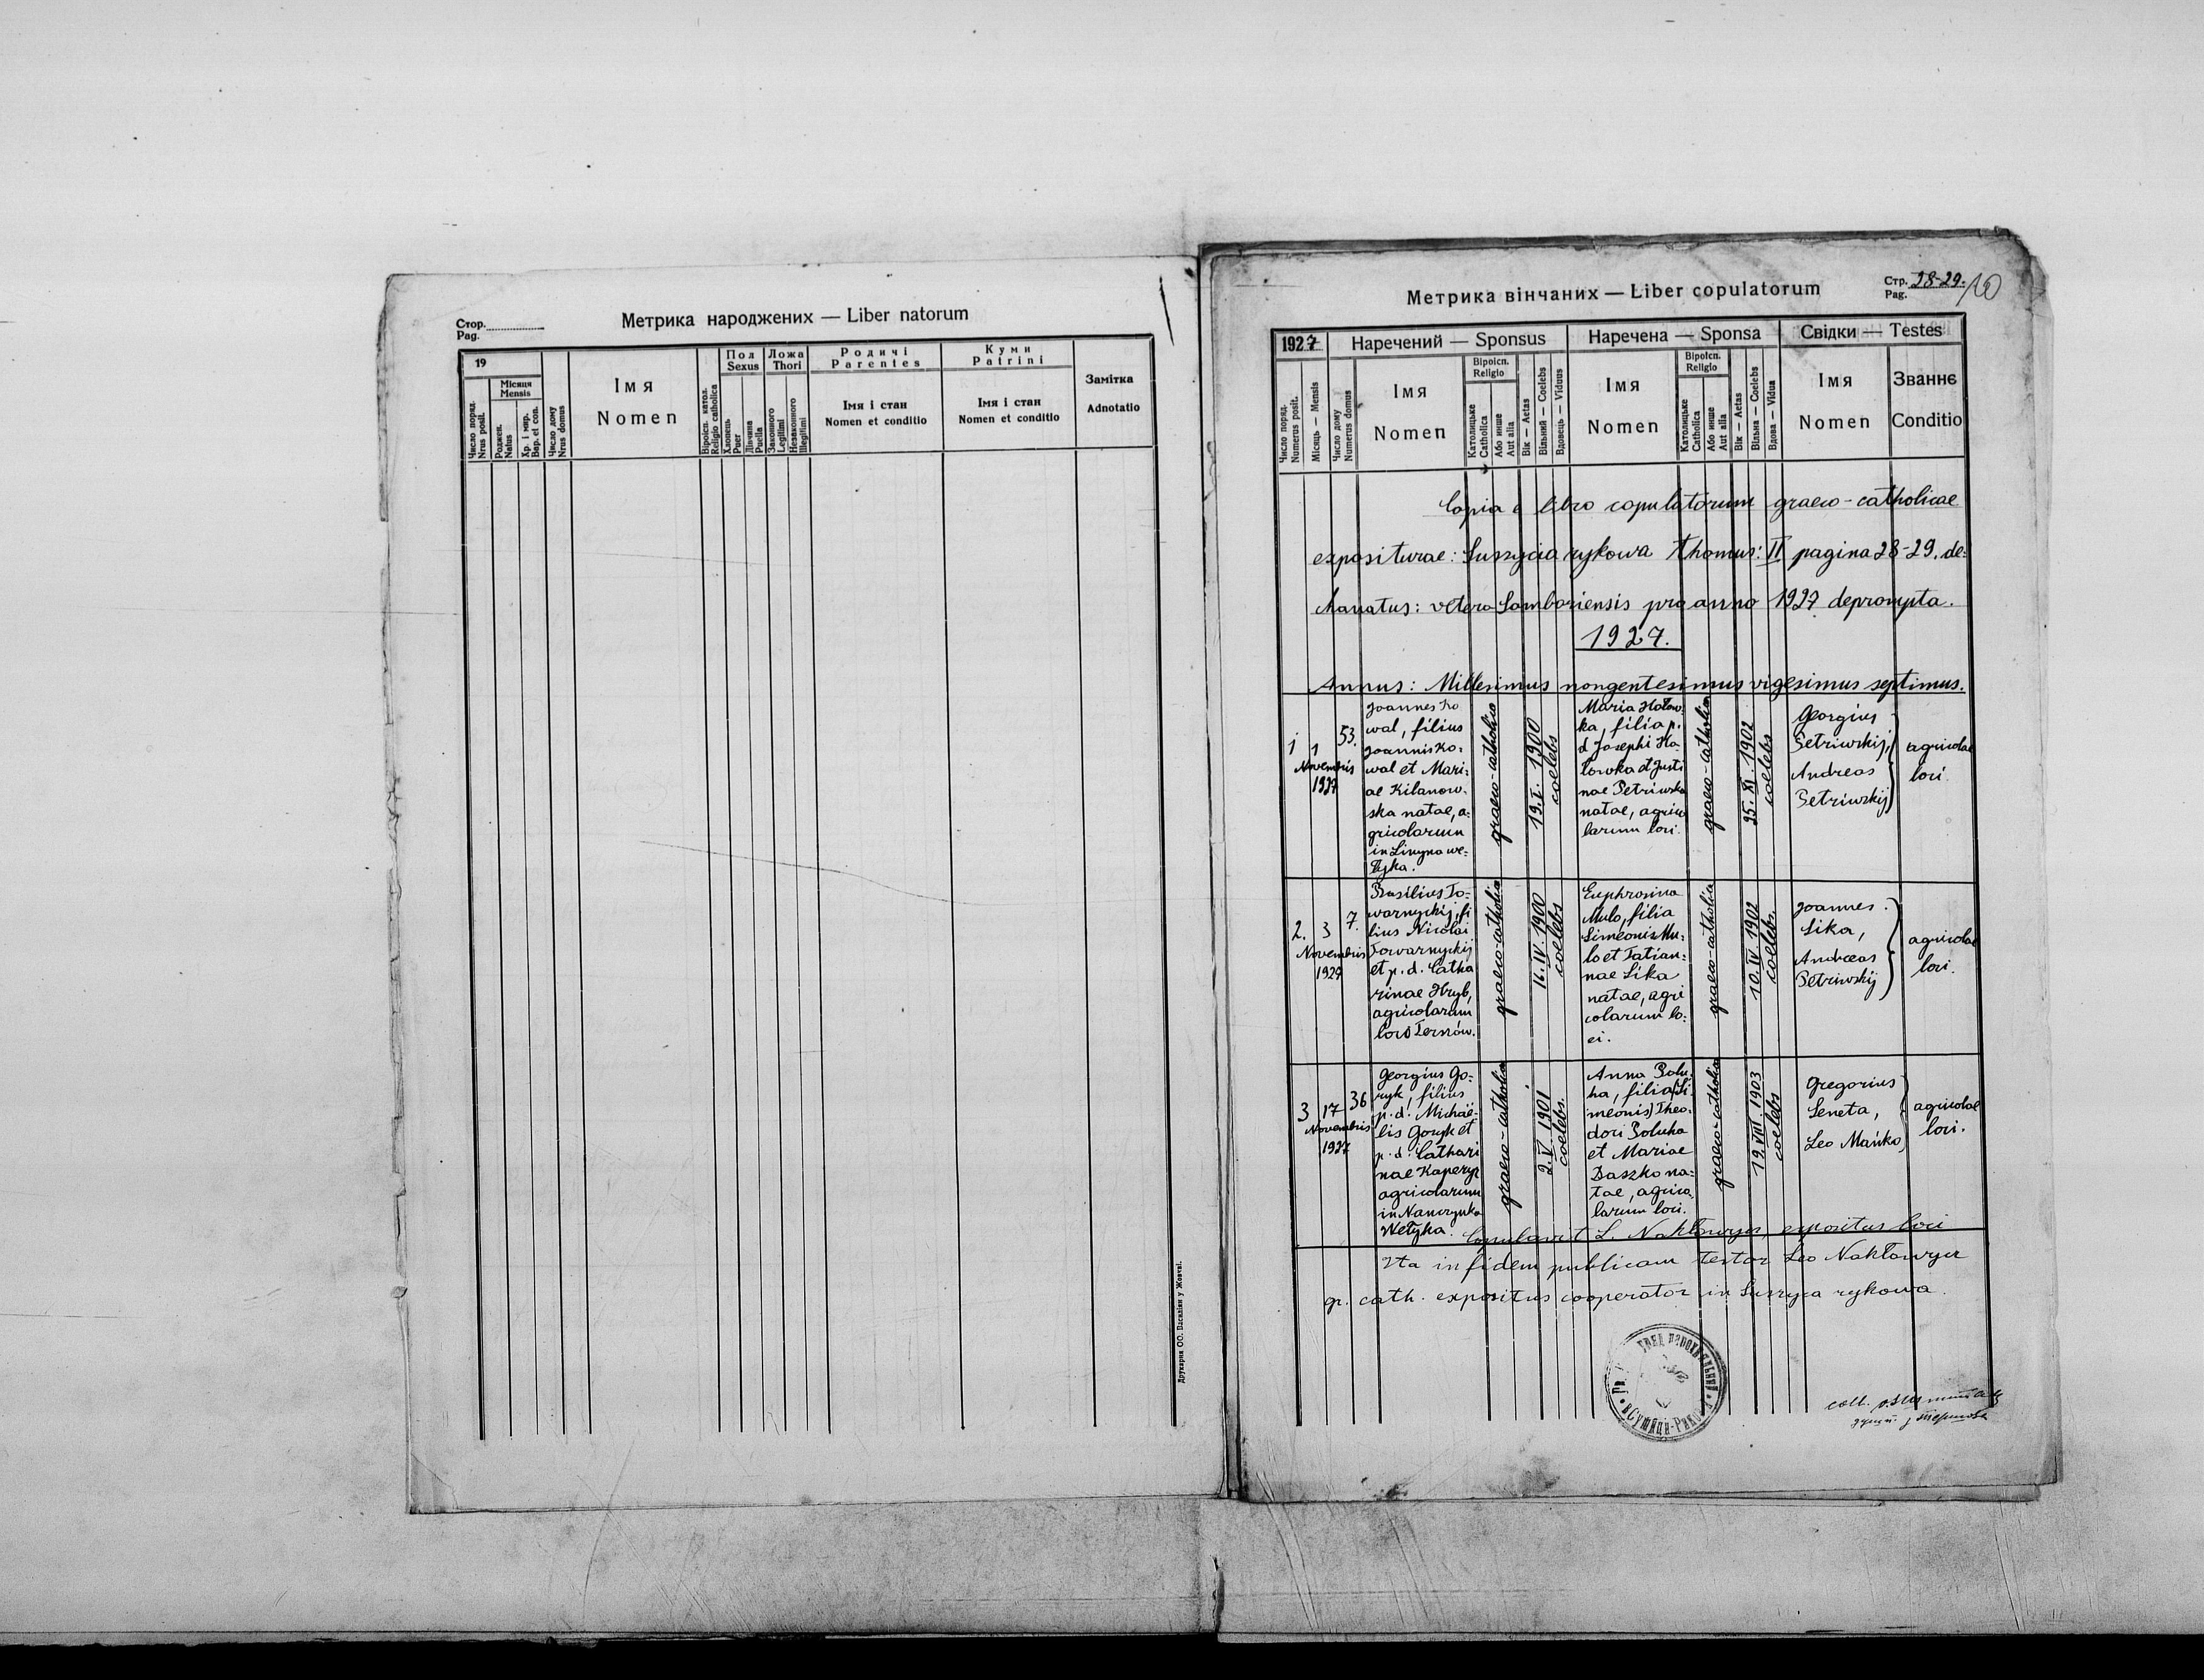 Стор.
Pag.
Метрика народжених — Liber natorum
19
Число поряд.
Nrus posit.
Місяця
Mensis
Роджен.
Natus
Хр. і мир.
Bap. et con.
Число дому
Nrus domus
Імя
Nomen
Віроісп. катол.
Religio catholica
Пол
Sexus
Хлопець
Puer
Дівчина
Puella
Ложа
Thori
Законного
Legitimi
Незаконного
Illegitimi
Родичі
Parentes
Імя і стан
Nomen et conditio
Куми
Patrini
Імя і стан
Nomen et conditio
Замітка
Adnotatio
Друкарня ОО. Василіян у Жовкві.
Метрика вінчаних — Liber copulatorum
Стр. 28-29.
Pag.
1927
Наречений — Sponsus
Наречена — Sponsa
Свідки — Testes
Число поряд.
Numerus posit.
Місяць — Mensis
Число дому
Numerus domus
Імя
Nomen
Віроісп.
Religio
Католицьке
Catholica
Або инше
Aut alia
Вік — Aetas
Вільний — Coelebs
Вдовець — Viduus
Імя
Nomen
Віроісп.
Religio
Католицьке
Catholica
Або инше
Aut alia
Вік — Aetas
Вільна — Coelebs
Вдова — Vidua
Імя
Nomen
Званнє
Conditio
Copia e libro copulatorum graeco-catholicae
expositurae: Suszycia rykowa Thomus: II pagina 28-29. de=
kanatus: vetero Samboriensis pro anno 1927 deprompta.
1927.
Annus: Millesimus nongentesimus vigesimus septimus.
1
1
Novembris
1927
53.
Joannes Ko
wal, filius
Joannis Ko=
wal et Mari=
ae Kilanow=
ska natae, a=
gricolarum
in Linyna we=
łyka.
graeco-catholica
19. I. 1900
coelebs
Maria Hołow
ka, filia p.
d Josephi Ho=
łowka et Justi
nae Petriwska
natae, agrico
larum loci.
graeco-catholica
25. XI. 1902
coelebs
Georgius
Petriwskij,
Andreas
Petriwskij
agricolae
loci.
2.
3
Novembris
1927
7.
Basilius To=
warnyckij, fi
lius Nicolai
Towarnyckij
et p. d. Catha
rinae Hryb,
agricolarum
loco Ternów.
graeco-catholica
16. IV. 1900
coelebs
Euphrosina
Mulo, filia
Simeonis Mu=
lo et Tatian=
nae Sika
natae, agri
colarum lo=
ci.
graeco-catholica
10. IV. 1902
coelebs.
Joannes
Sika,
Andreas
Petriwskij
agricolae
loci.
3
17
Novembris
1927
36
Georgius Go=
ryk, filius
p. d. Michaë=
lis Goryk et
p. d. Cathari
nae Kaperyz
agricolarum
in Nanczynka
Wełyka.
graeco-catholica
2. V. 1901
coelebs.
Anna Polu
ha, filia (Si
meonis) Theo=
dori Poluha
et Mariae
Daszko na=
tae, agrico
larum loci.
graeco-catholica
19. VIII. 1903
coelebs
Gregorius
Seneta,
Leo Mańko
agricolae
loci.
Copulavit L. Nakłowycz, expositus loci
Ita in fidem publicam testor Leo Nakłowycz
gr. cath. expositus cooperator in Suszyca rykowa.
coll.